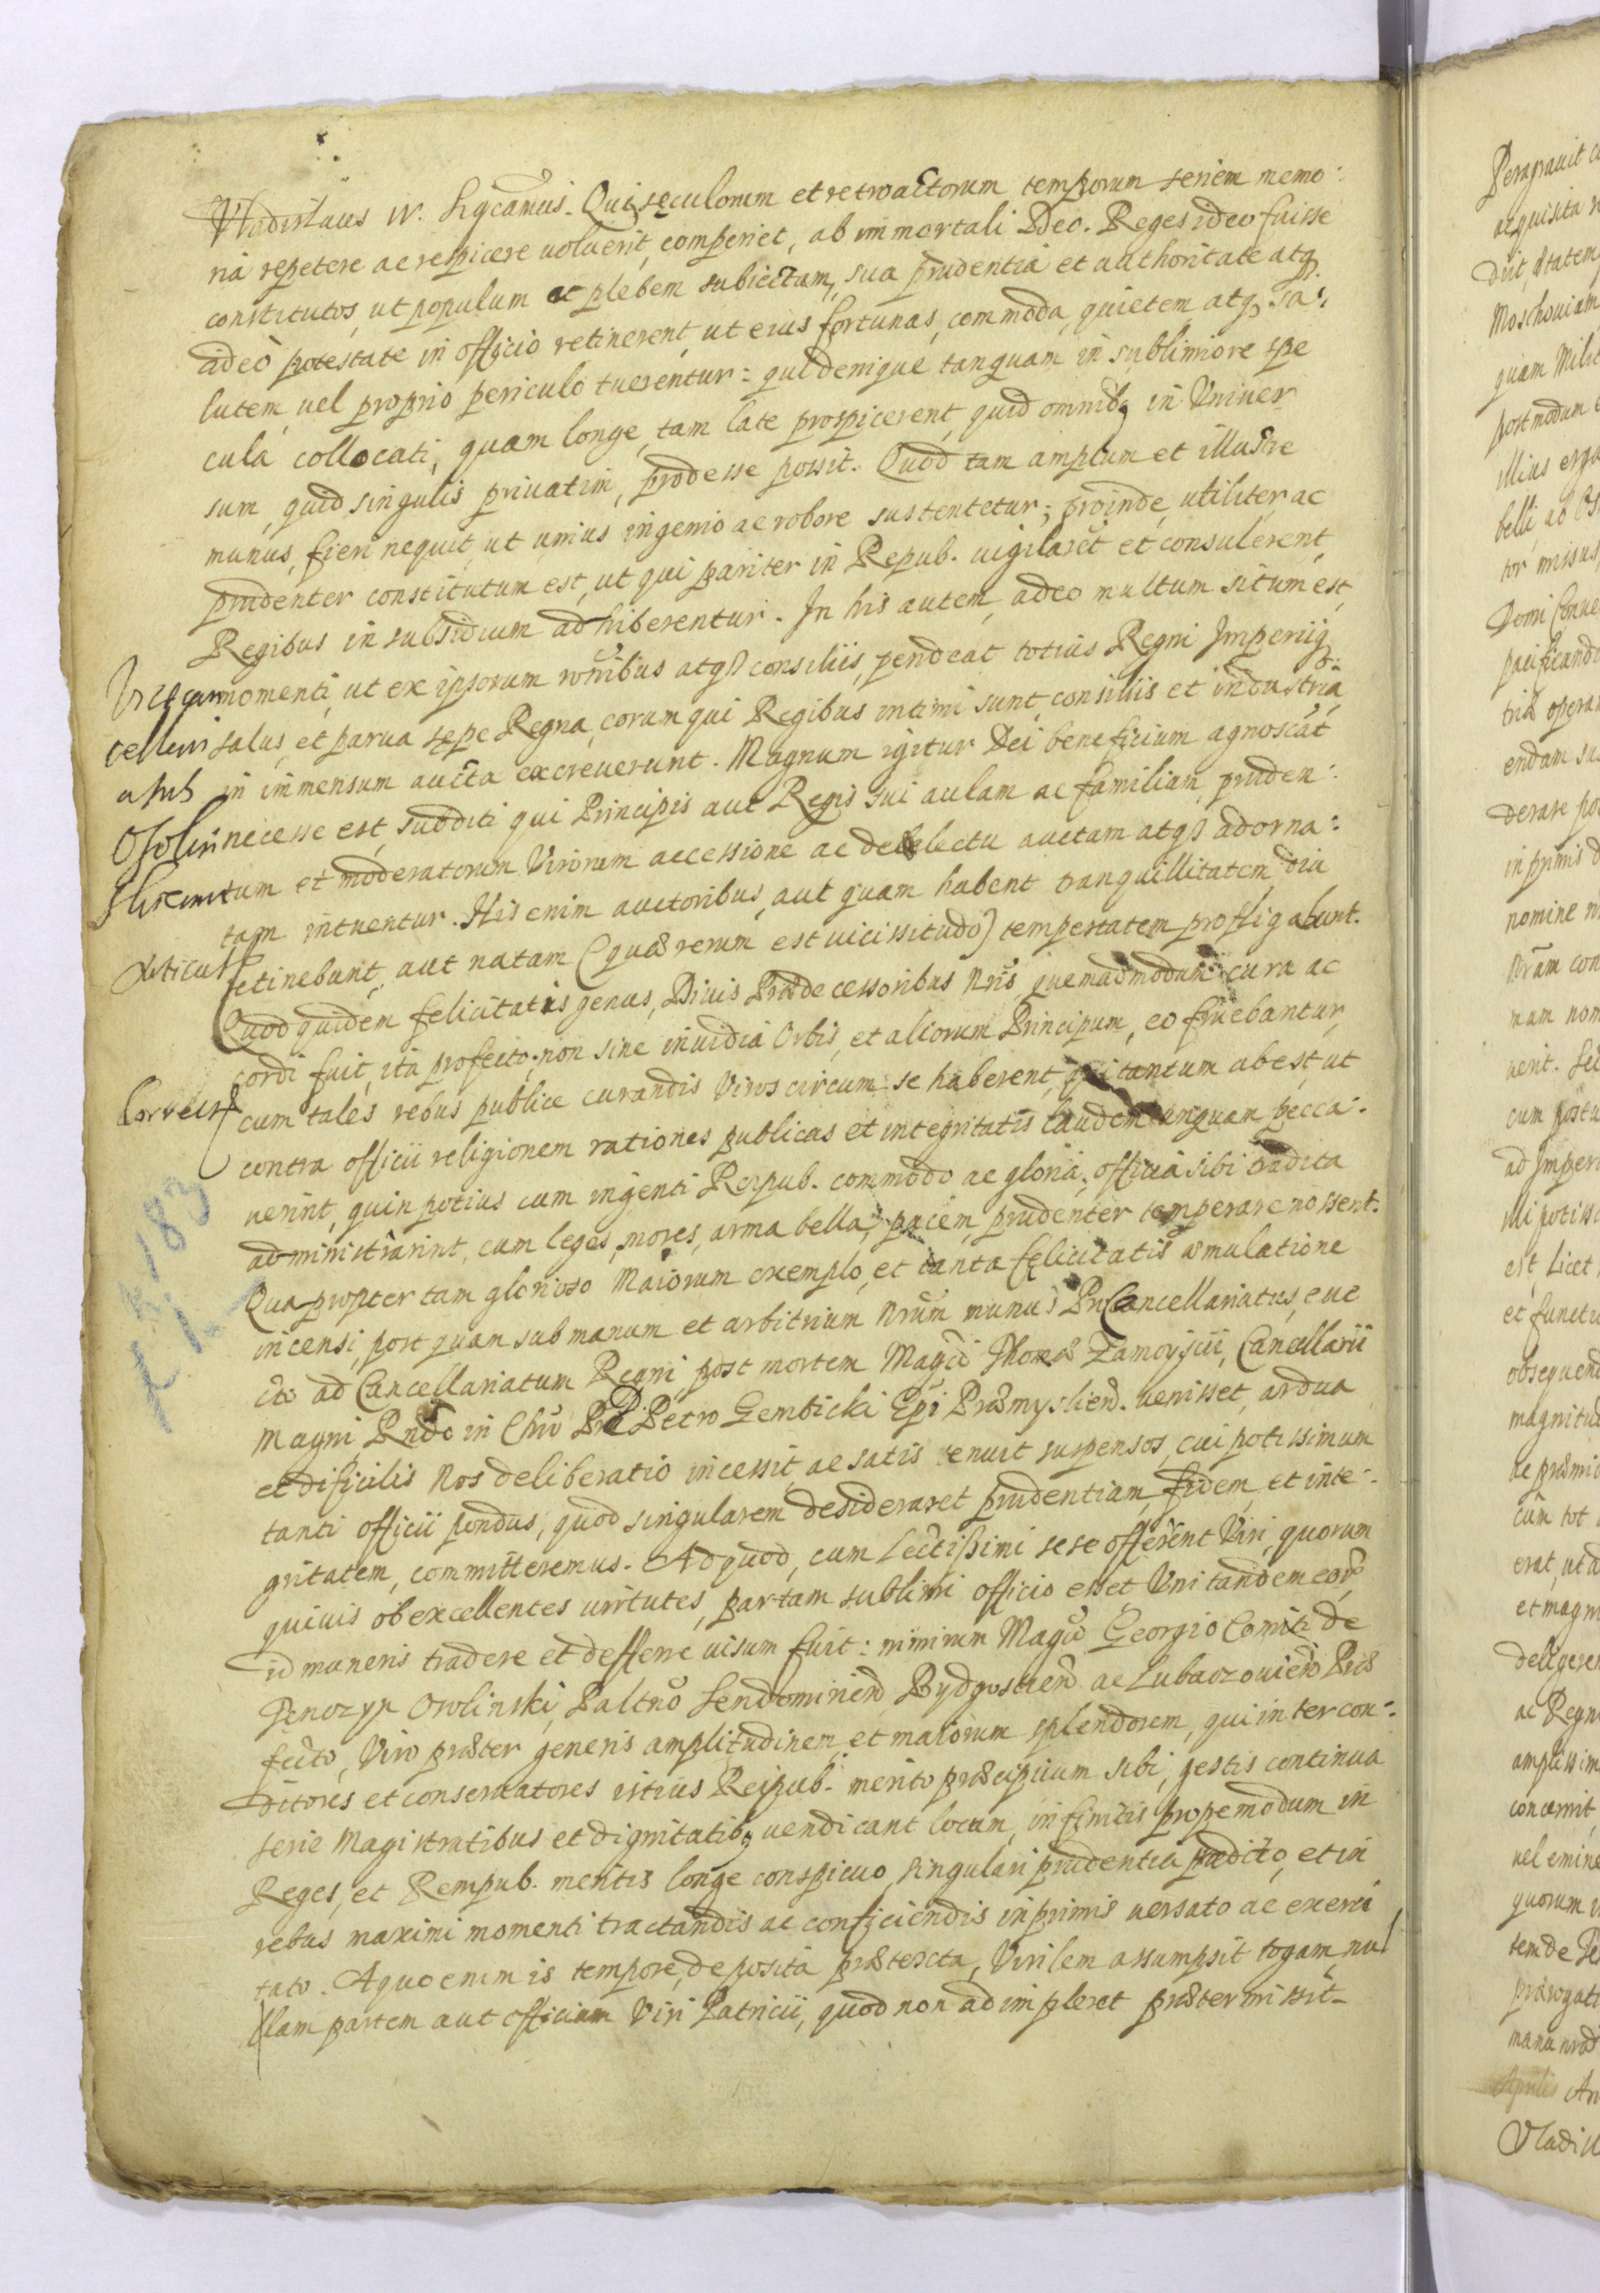 Vladislaus IV. Sigcamus. Qui seculorum et retroactorum temporum seriem memo:
ria repetere ac respicere voluerit, comperiet, ab immortali Deo. Reges ideo fuisse
constitutos, ut populum et plebem subiectam, sua prudentia et authoritate atq
adeo potestate in officio retinerent, ut eius fortunas, commoda, quietem atq sa:
lutem, vel proprio periculo tuerentur: qui denique tanquam in sublimiore spe
cula collocati, quam longe, tam late prospicerent, quid omnibq in Univer
sum, quid singulis privatim, prodesse possit. Quod tam amplum et illustre
munus, fieri nequit, ut unius ingenio ac robore sustentetur; proinde, utiliter ac
prudenter constitutum est, ut qui pariter in Repub. vigilaret et consulerent,
Regibus in subsidium adhiberentur. In his autem, adeo multum situm est,
momenti, ut ex ipsorum atq consiliis, pendeat totius Regni Imperiiq
salus, et parva sepe Regna, eorum qui Regibus intimi sunt, consiliis et industria,
in immensum aucta excreverunt. Magnum igitur Dei beneficium agnoscat
necesse est, subditi qui Principis aut Regis sui aulam ac familiam, pruden:
tum et moderatorum Virorum accessione ac delectu auctam atq adorna:
tam intuentur. His enim auctoribus, aut quam habent tranquillitatem diu
retinebunt, aut natam (quæ rerum est vicissitudo) tempestatem profligabunt.
Quod quidem felicitatis genus, Divis Prædecessoribus Nris, quemadmodum cura ac
cordi fuit, ita profecto, non sine invidia Orbis, et aliorum Principum, eo fruebantur,
cum tales rebus publice curandis Viros circum se haberent, qui tantum abest, ut
contra officii religionem rationes publicas et integritatis laudem unquam pecca:
verint, quin potius cum ingenti Reipub. commodo ac gloria, officia sibi tradita
administrarint, cum leges, mores, arma bella, pacem, prudenter temperare nossent.
Qua propter tam glorioso Maiorum exemplo, et tanta felicitatis æmulatione
incensi, post quam sub manum et arbitrium Nrum munus ProCancellariatus, eve
cto ad Cancellariatum Regni, post mortem Magci Thomæ Zamoyscii, Cancellarii
Magni Rndo in Chro Pre Petro Gembicki Epi Præmyslien. venisset, ardua
et difficilis Nos deliberatio incessit, ac satis tenuit suspensos, cui potissimum
tanti officii pondus, quod singularem desideraret prudentiam, fidem, et inte:
gritatem, committeremus. Ad quod, cum Lectissimi sese offerent Viri, quorum
quivis ob excellentes virtutes, par tam sublimi officio esset, Uni tandem eor
id muneris tradere et defferre visum fuit: nimirum Magco Georgio Comiti de
Tenczyn Ossolinski, Paltno Sendomirien Bydgostien ac Lubaczovien Præ
fecto, Viro præter generis amplitudinem et maiorum splendorem, qui inter con:
ditores et conservatores istius Reipub. merito præcipuum sibi, gestis continua
serie Magistratibus et dignitatibq vendicant locum, infinitis propemodum in
Reges, et Rempub. meritis longe conspicuo, singulari prudentia prædito, et in
rebus maximi momenti tractandis ac conficiendis inprimis versato ac exerci
tato. A quo enim is tempore, deposita prætexta, Virilem assumpsit togam, nul
llam partem aut officium Viri Patricii, quod non adimpleret prætermisit.
Vicecan
cellari
atus
Ossolin
skiemu
Correct